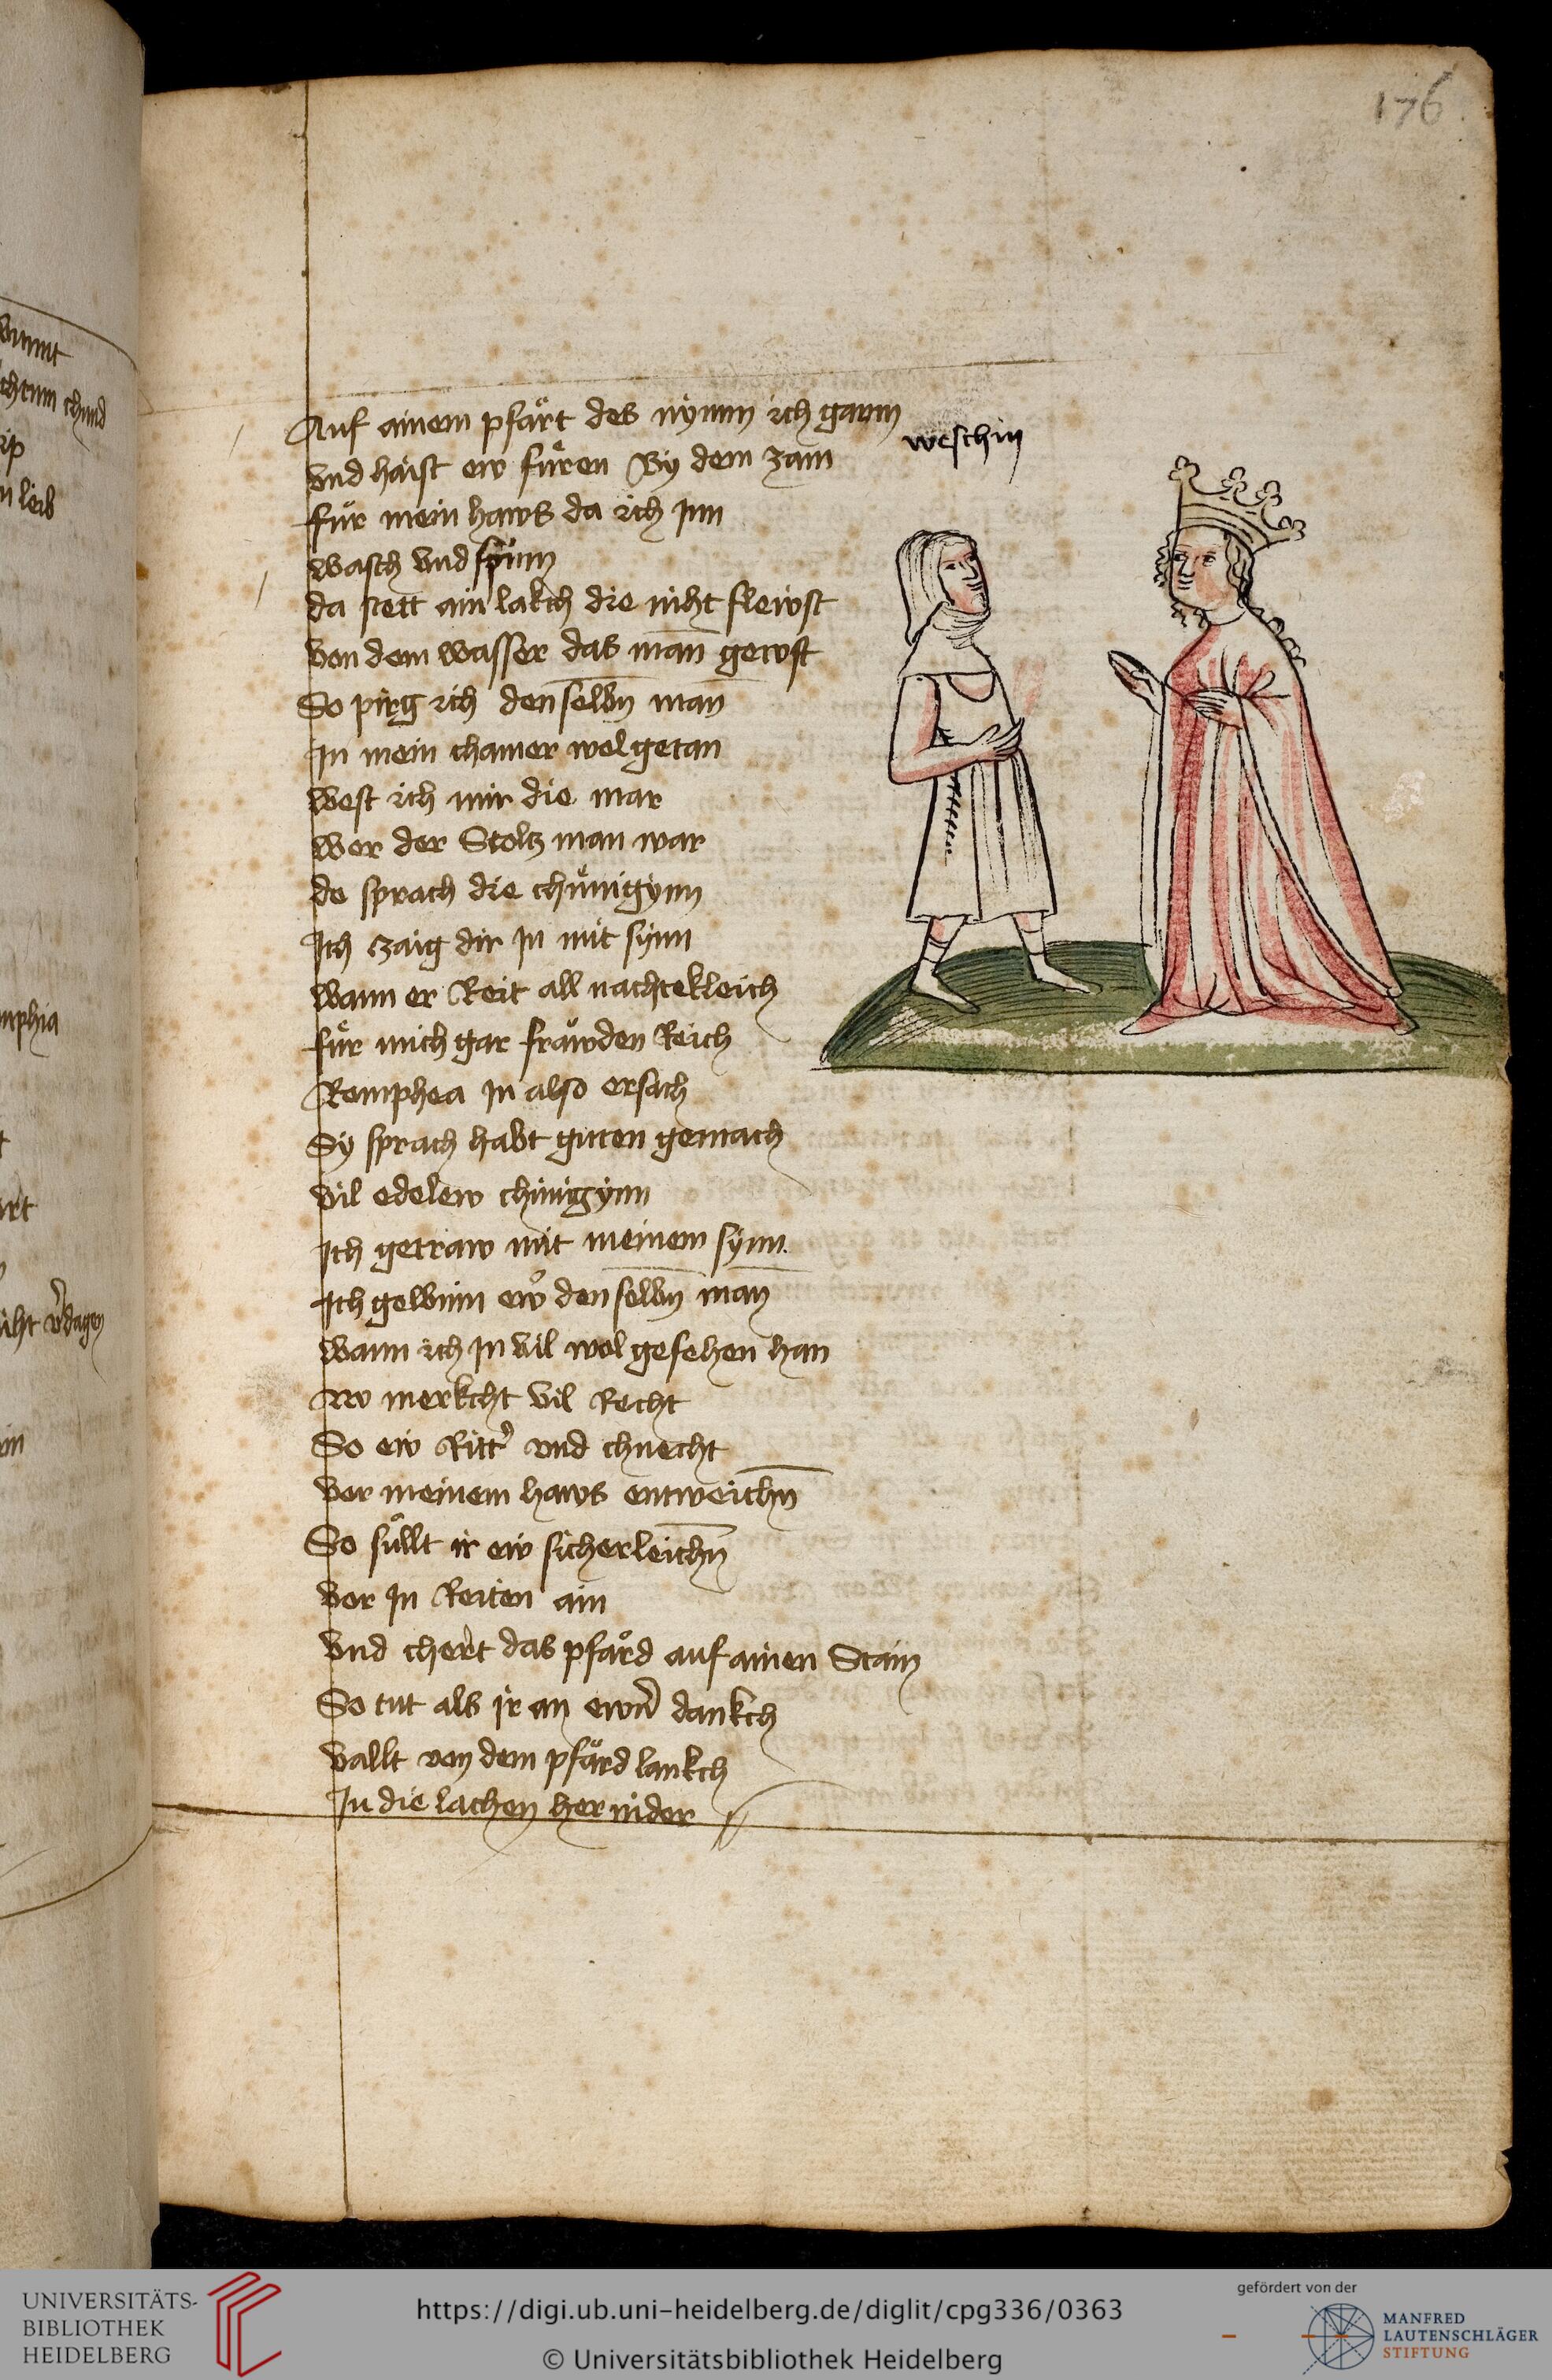 176
Auf ainem pfärt des nymm ich gaum
weschin
vnd haist ew füren By dem zam
für mein haws da ich Inn
wasch vnd spinn
da stett ain lakch die niht flewst
von dem wasser das man̄ gewst
So pirg ich den selbn̄ man̄
In mein chamer wolgetan
west ich mir die mar
wer der Stoltz man war
do sprach die chünigynn
Ich czaig dir In mit synn
wann er Reit all nachtekleich
für mich gar fräwden Reich
Romphea In also ersach
Sy sprach habt guten gemach
vil edelew chinigynn
Ich getraw mit meinem synn
Ich gewinn ew den selbn̄ man̄
wann ich In vil wol gesehen han
Nv merkcht vil Recht
So ew Ritt' vnd chnecht
vor meinem haws entweichn̄
So süllt ir ew sicherleichn̄
vor In Reiten ain
vnd chert das pfärd auf ainen Stain
So tut als ir an ewrn̄ dankch
vallt von dem pfärd lankch
In die lachen her nider
chtum chund
leib
mphia
niht v'dagen
UNIVERSITÄTS-
BIBLIOTHEK
HEIDELBERG
https://digi.ub.uni-heidelberg.de/diglit/cpg336/0363
© Universitätsbibliothek Heidelberg
gefördert von der
MANFRED
LAUTENSCHLÄGER
STIFTUNG